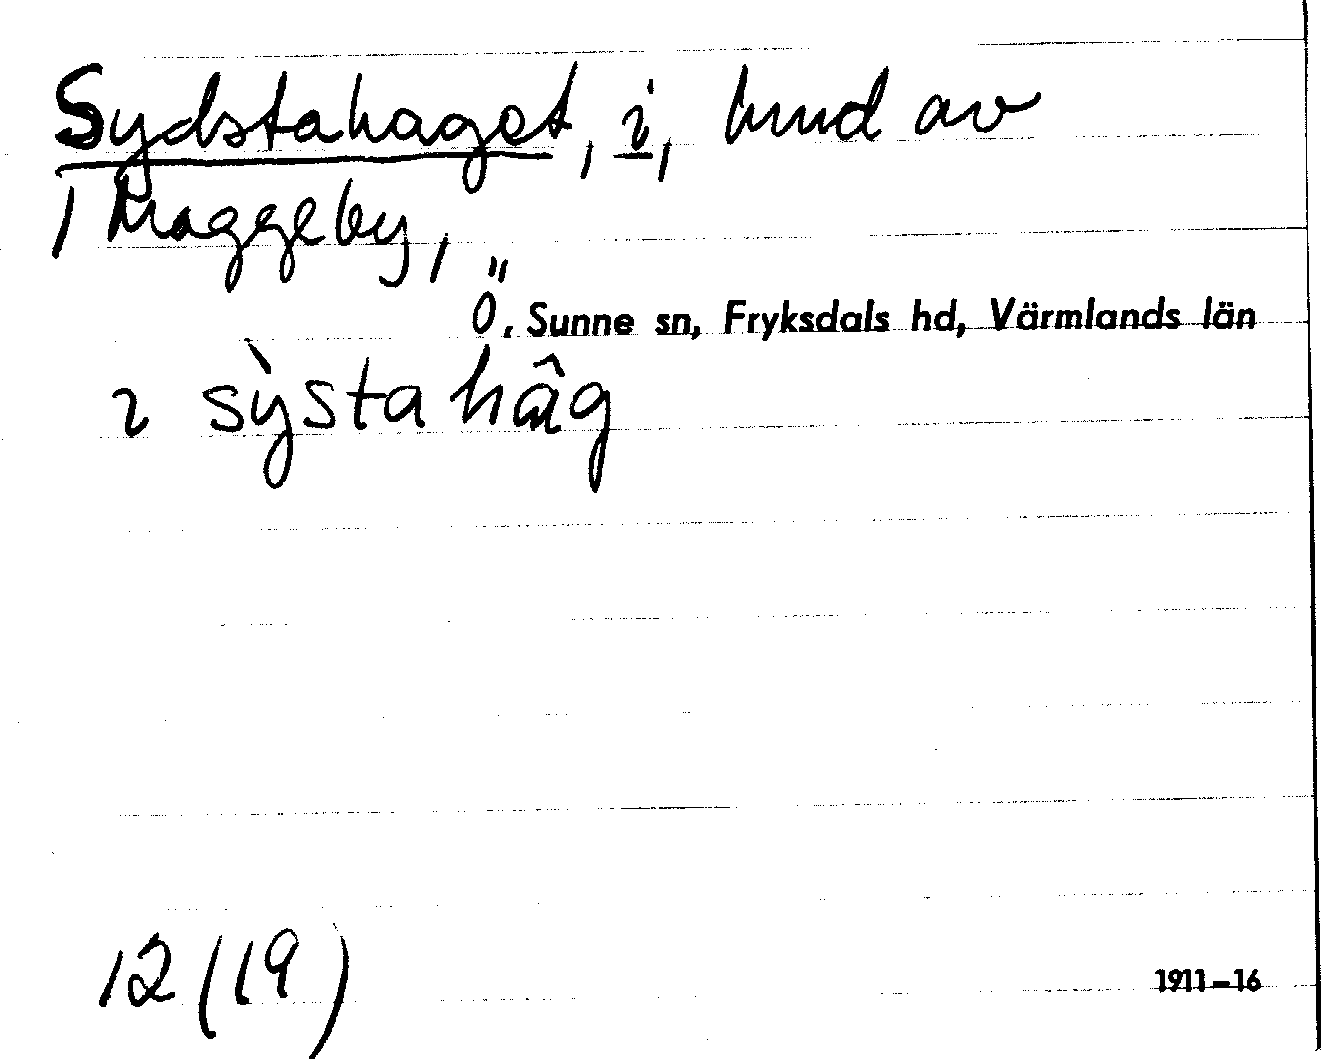 Sydstahaget, i, hmd av
Maggeby,
Ö. Sunne sn, Fryksdals hd, Värmlands län
ı sỳsta hâg
12 (19)
1911–16